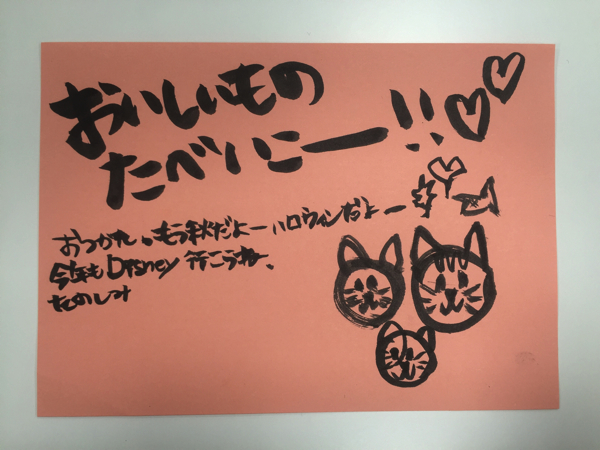 おいしいもの
たべいこー!!
おつかれ。もう秋だよーハロウィンだよー
今年もDisney行こうね、
たのしみ